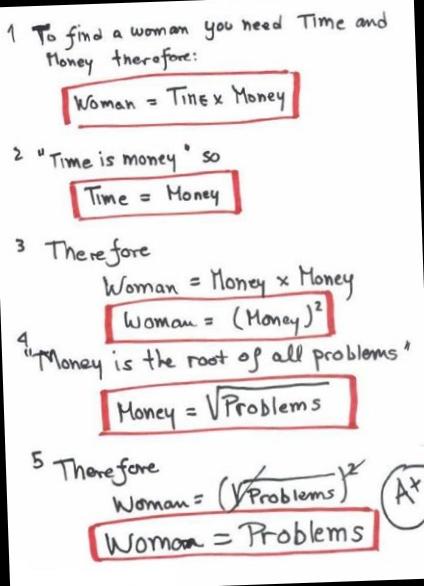 1 To find a woman you need Time and
Money therefore:
Woman = Time x Money
2 "Time is money" so
Time = Money
3 Therefore
Woman = Money x Money
Woman = (Money)²
4 "Money is the root of all problems"
Money = √Problems
5 Therefore
Woman = (√Problems)²
A+
Woman = Problems